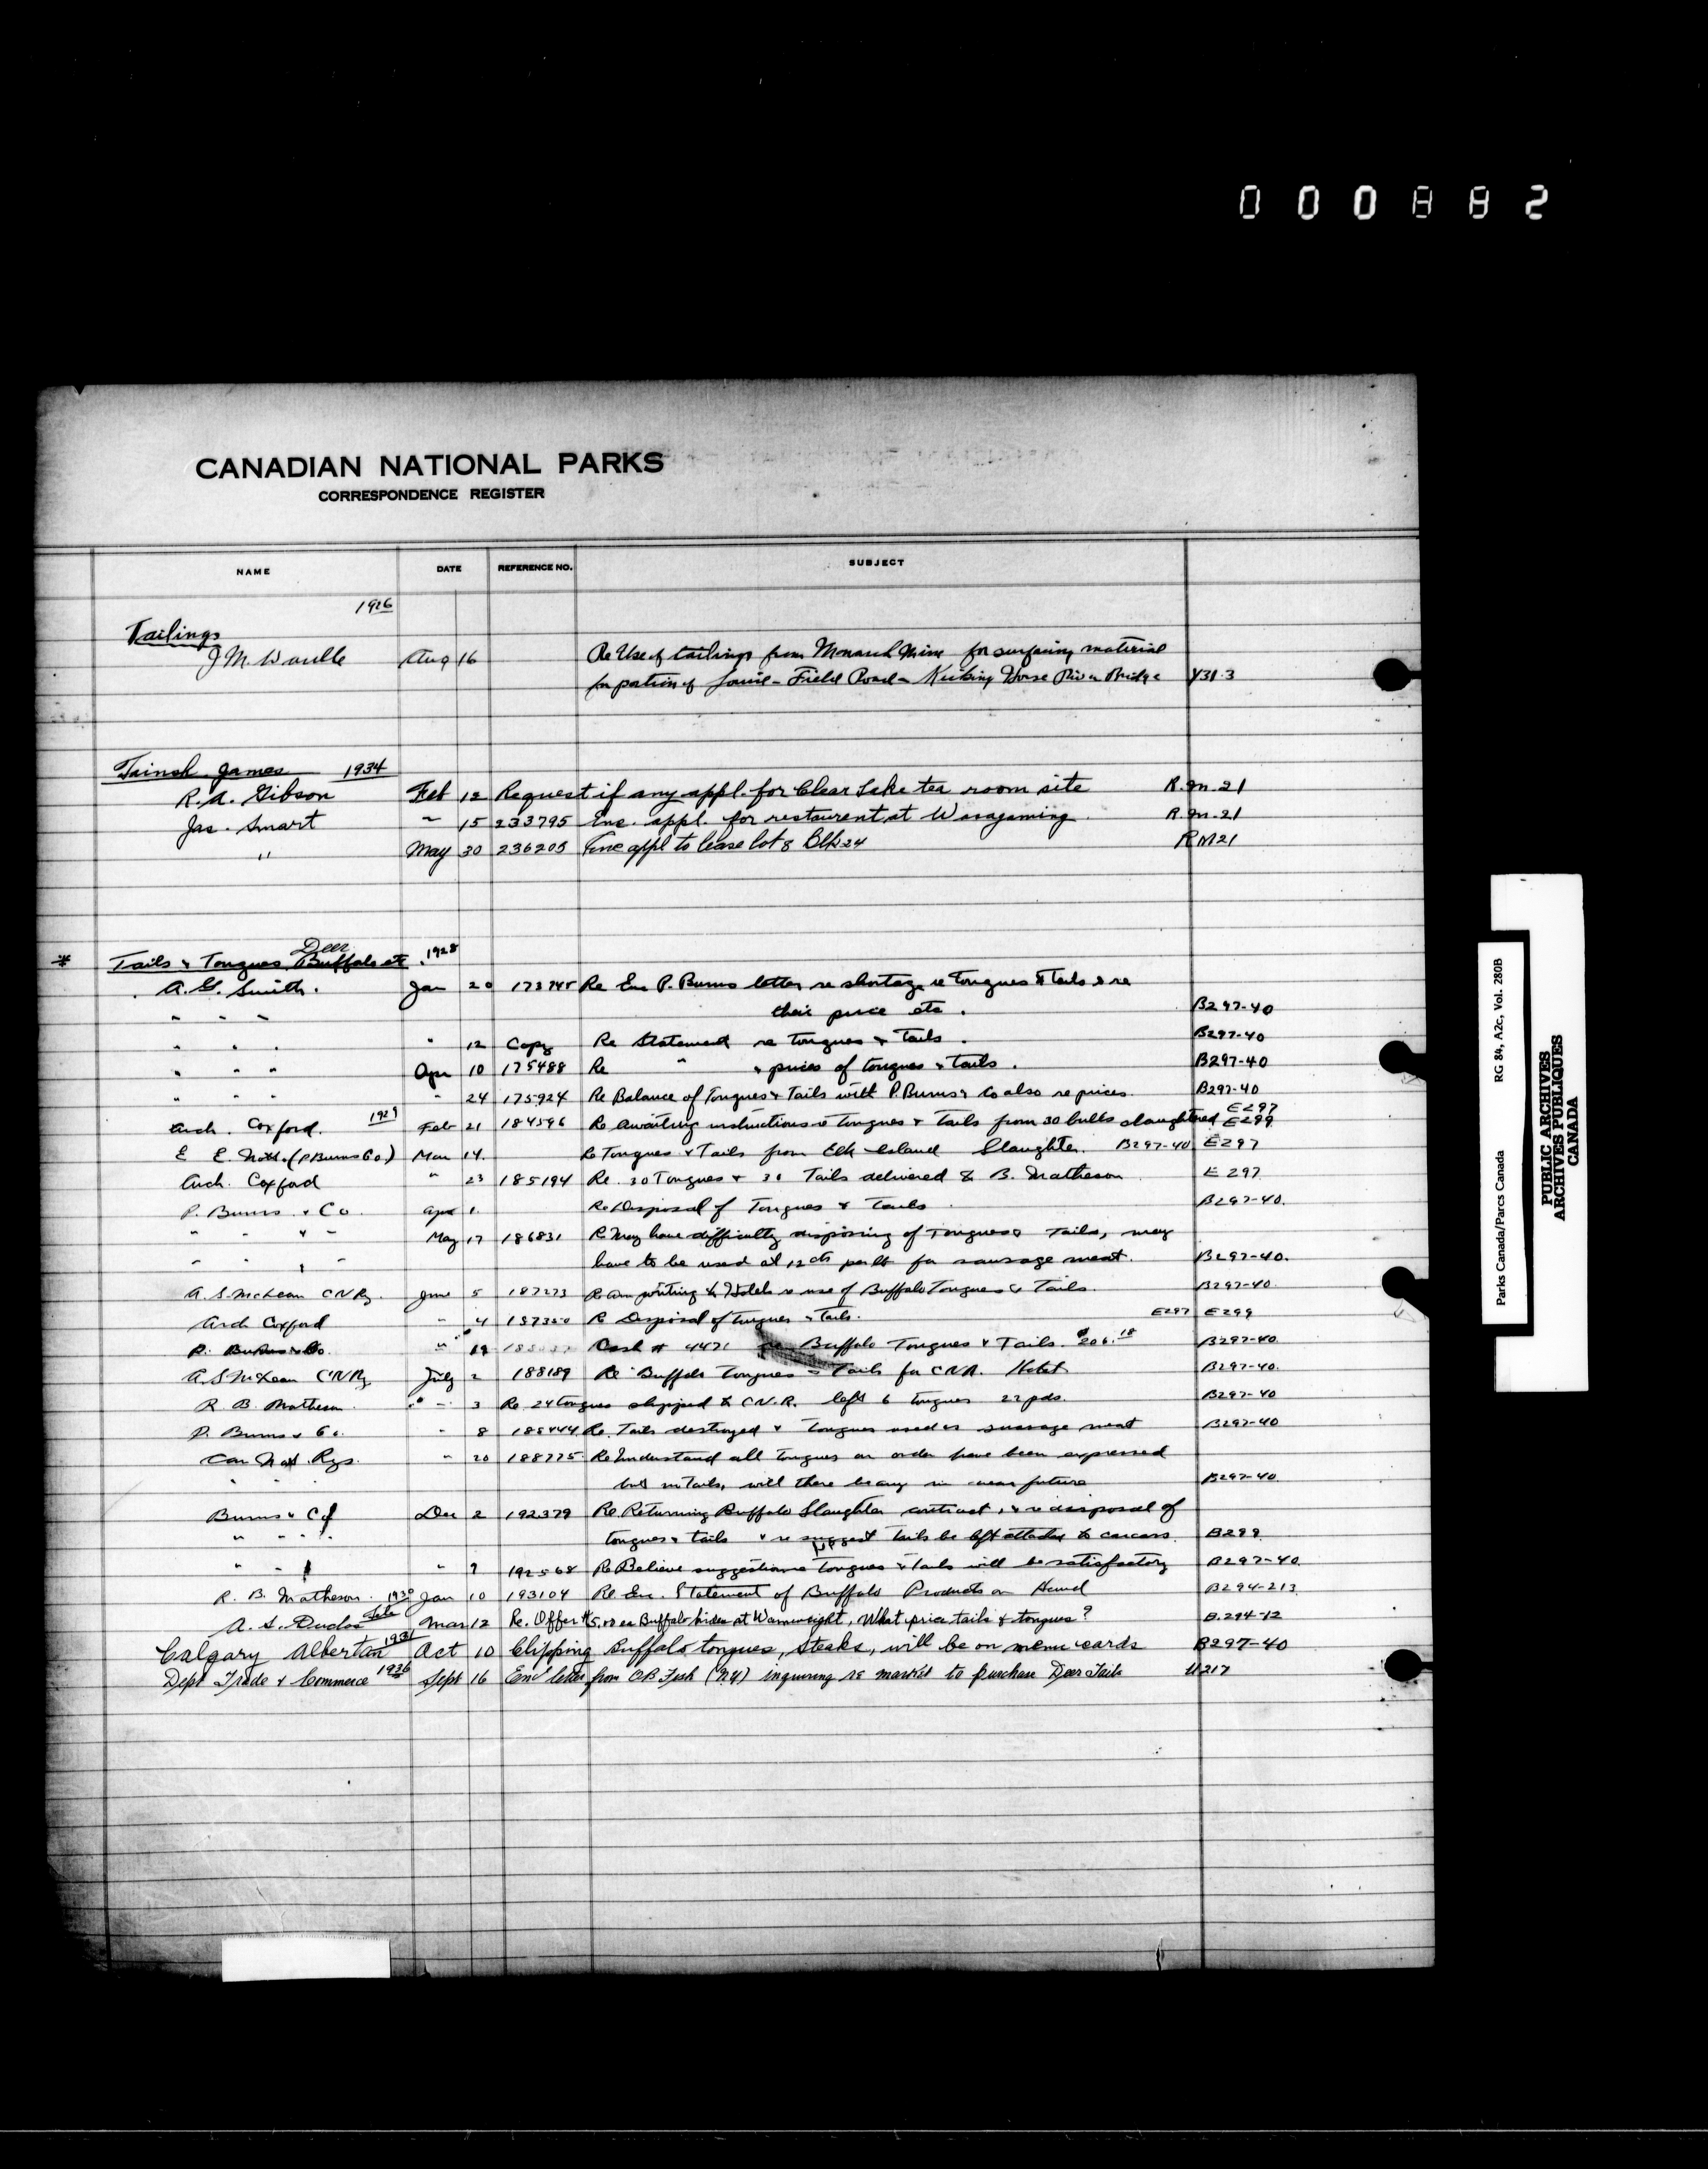 000882
CANADIAN NATIONAL PARKS
CORRESPONDENCE REGISTER
NAME DATE REFERENCE NO. SUBJECT
1926
Tailings
J.M. Wardle Aug 16 Re Use of tailings from Monarch Mine for surfacing material
for portion of Field Road - Kicking Horse River Bridge Y31-3
Tainsh James 1934
R.A. Gibson Feb 12 Request if any appl. for Clear Lake tea room site R.M.21
Jas. Smart " 15 233795 Enc. appl. for restaurent at Wasagaming. R.M.21
" May 30 236205 Enc appl to lease lot 8 Blk 24 RM21
Deer
* Tails & Tongues, Buffalo etc. 1928
A.G. Smith. Jan 20 173745 Re Enc P. Burns letter re shortage re Tongues & Tails & re
" " " their price etc. B297-40
" " " " 12 Copy Re Statement re tongues & Tails. B297-40
" " " Apr 10 175488 Re " & prices of tongues & tails. B297-40
" " " " 24 175924 Re Balance of Tongues & Tails with P. Burns & Co also re prices. B297-40
E297
Arch. Coxford. 1929 Feb 21 184596 Re awaiting instructions re tongues & tails from 30 bulls slaughtered E299
E. E. Nott. (P Burns Co.) Mar 14. Re Tongues & Tails from Elk Island Slaughter. B297-40 E297
Arch. Coxford " 23 185194 Re. 30 Tongues & 30 Tails delivered to B. Matheson E297
P. Burns & Co. Apr 1. Re Disposal of Tongues & Tails B297-40.
" " " " May 17 186831 Re May have difficulty disposing of Tongues & Tails, may
" " have to be used at 12 cts per lb for sausage meat. B297-40.
A. S. McLean C N Ry. June 5 187273 Re am writing to Hotels re use of Buffalo Tongues & Tails. B297-40.
Arch Coxford " 4 187350 Re Disposal of tongues & Tails. E297 E299
P. Burns & Co. " 19 Cash # 4471 Buffalo Tongues & Tails. $206.18 B297-40
A. S. McLean C N Ry. July 2 188189 Re Buffalo Tongues & Tails for C.N.R. Hotel B297-40.
R. B. Matheson " 3 Re 24 tongues shipped to C.N.R. left 6 tongues 22 pds. B297-40
P. Burns & Co. " 8 188444 Re Tails destroyed & tongues used as sausage meat B297-40
Can Natl Rys. " 20 188775 Re Understand all tongues on order have been expressed
" " but no tails, will there be any in near future B297-40
Burns & Co Dec 2 192379 Re Returning Buffalo Slaughter contract, & re disposal of
" " " tongues & tails & re suggest tails be left attached to carcass B299
" " " 9 192568 Re Believe suggestion re tongues & tails will be satisfactory B297-40
R. B. Matheson. 1930 Jan 10 193104 Re Enc. Statement of Buffalo Products on Hand B294-213
A. S. Duclos Mar 12 Re. Offer $5.00 ea Buffalo hides at Wainwright. What price tails & tongues? B.294-12
Calgary Albertan 1931 Oct 10 Clipping Buffalo tongues, steaks, will be on menu cards B297-40
Dept Trade & Commerce 1936 Sept 16 Encl letter from C.B. Fish (N.Y.) inquiring re market to purchase Deer Tails U217
Parks Canada/Parcs Canada RG 84, A2c, Vol. 280B
PUBLIC ARCHIVES
ARCHIVES PUBLIQUES
CANADA